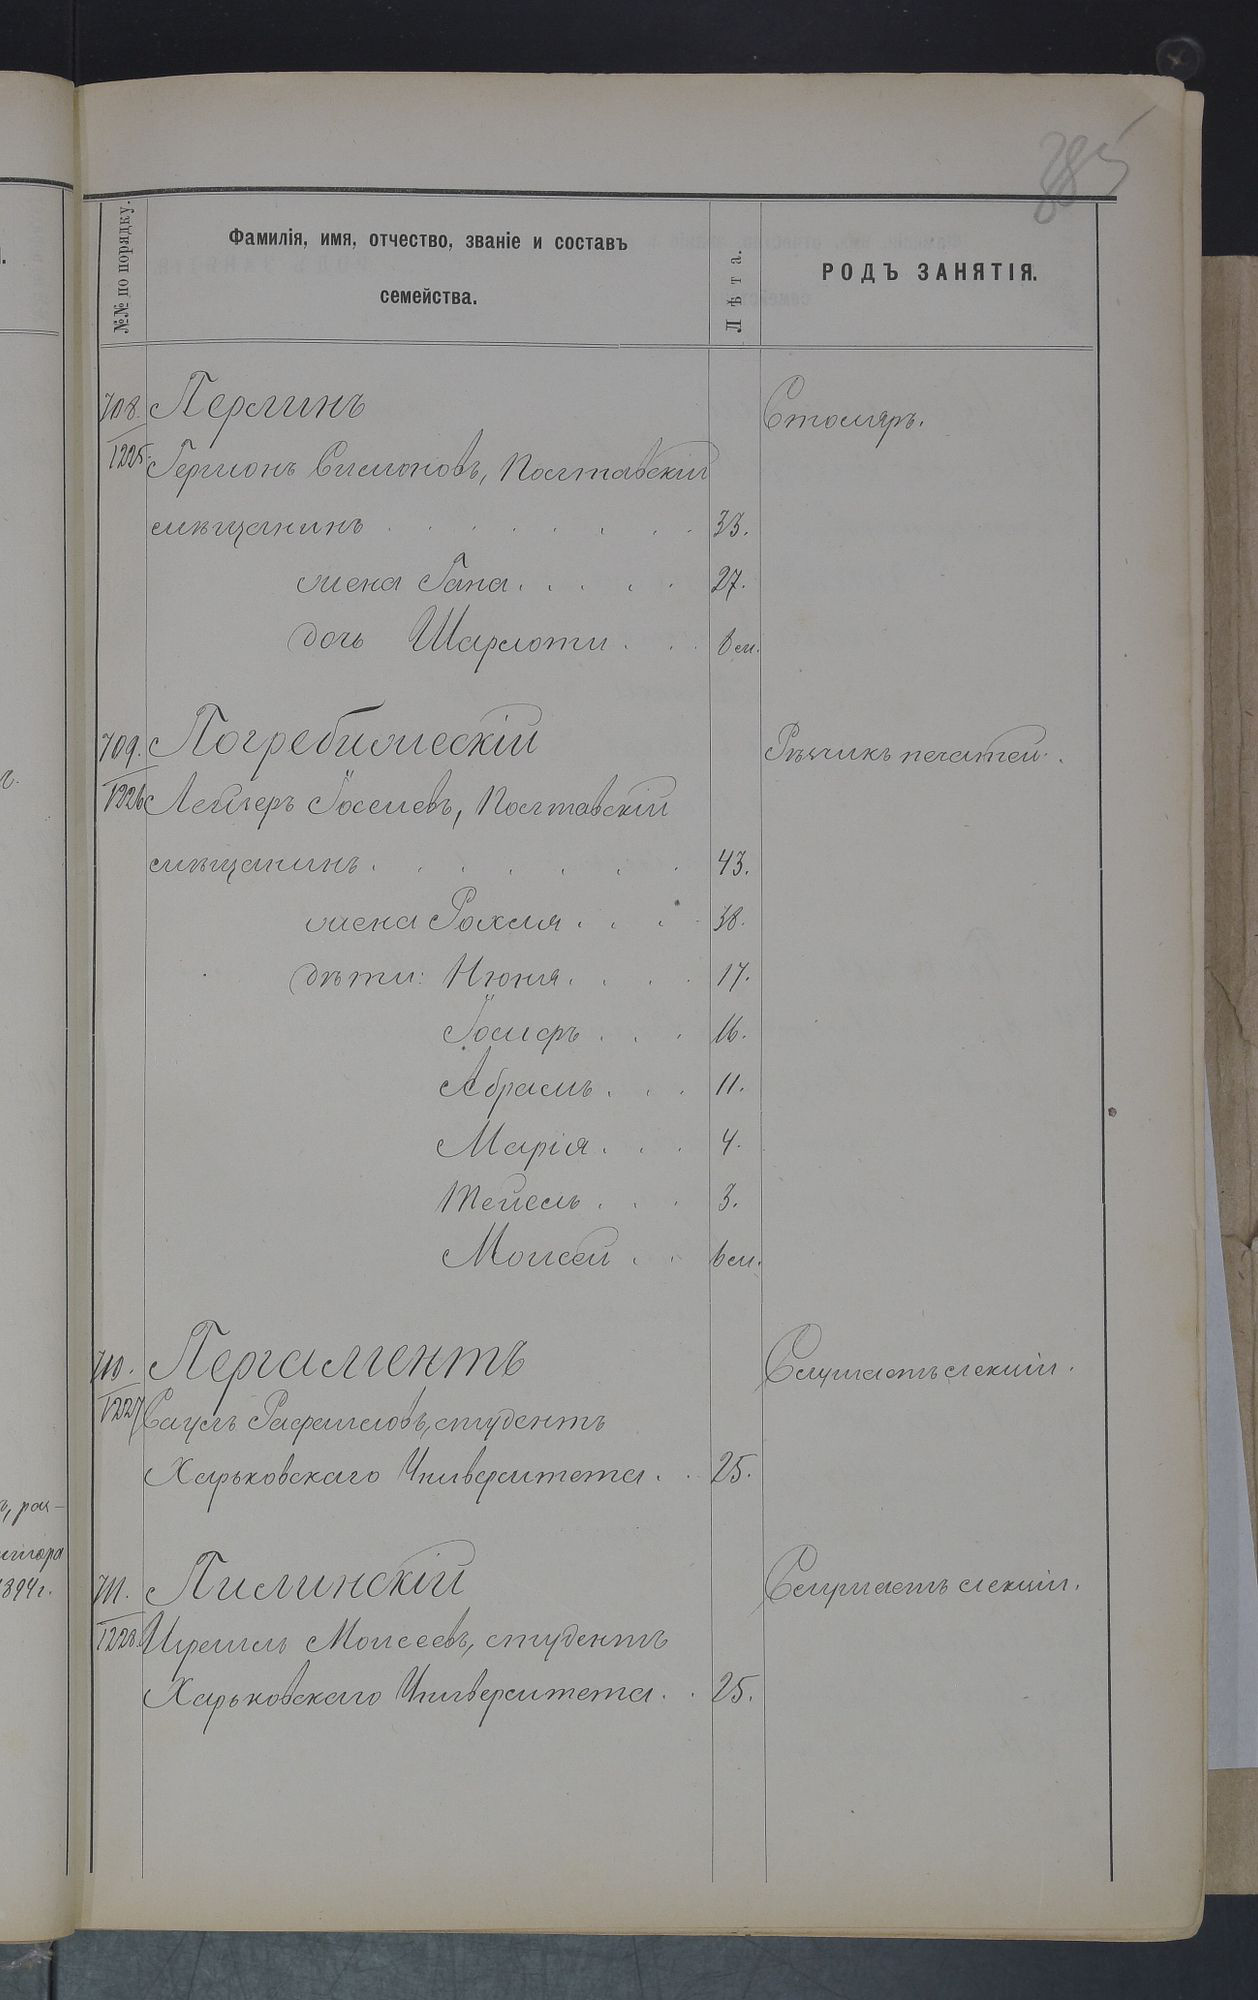 385
№№ по порядку.
Фамилія, имя, отчество, званіе и составъ
семейства.
Лѣта.
РОДЪ ЗАНЯТІЯ.
708. Перлинъ Столяръ.
1225. Гершонъ Симоновъ, Полтавскій
мѣщанинъ . . . . . . . 33.
жена Гана . . . . . 27.
дочь Шарлоти . . . 6 м.
709. Погребижескій Рѣзчикъ печатей.
1226 Лейзеръ Іоселевъ, Полтавскій
мѣщанинъ . . . . . . . 43.
жена Рохля . . . . 38.
дѣти: Нюня . . . . 17.
Іосифъ . . . 16.
Абрамъ . . . 11.
Марія . . . 4.
Тейсель . . . 3.
Моисей . . 6 м.
710. Пергаментъ Слушаетъ лекціи.
1227 Сауль Рафаиловъ, студентъ
Харьковскаго Университета . . 25.
711. Пилинскій Слушаетъ лекціи.
1228. Израиль Моисеевъ, студентъ
Харьковскаго Университета . . 25.
г.
ъ, рая-
1894 г.